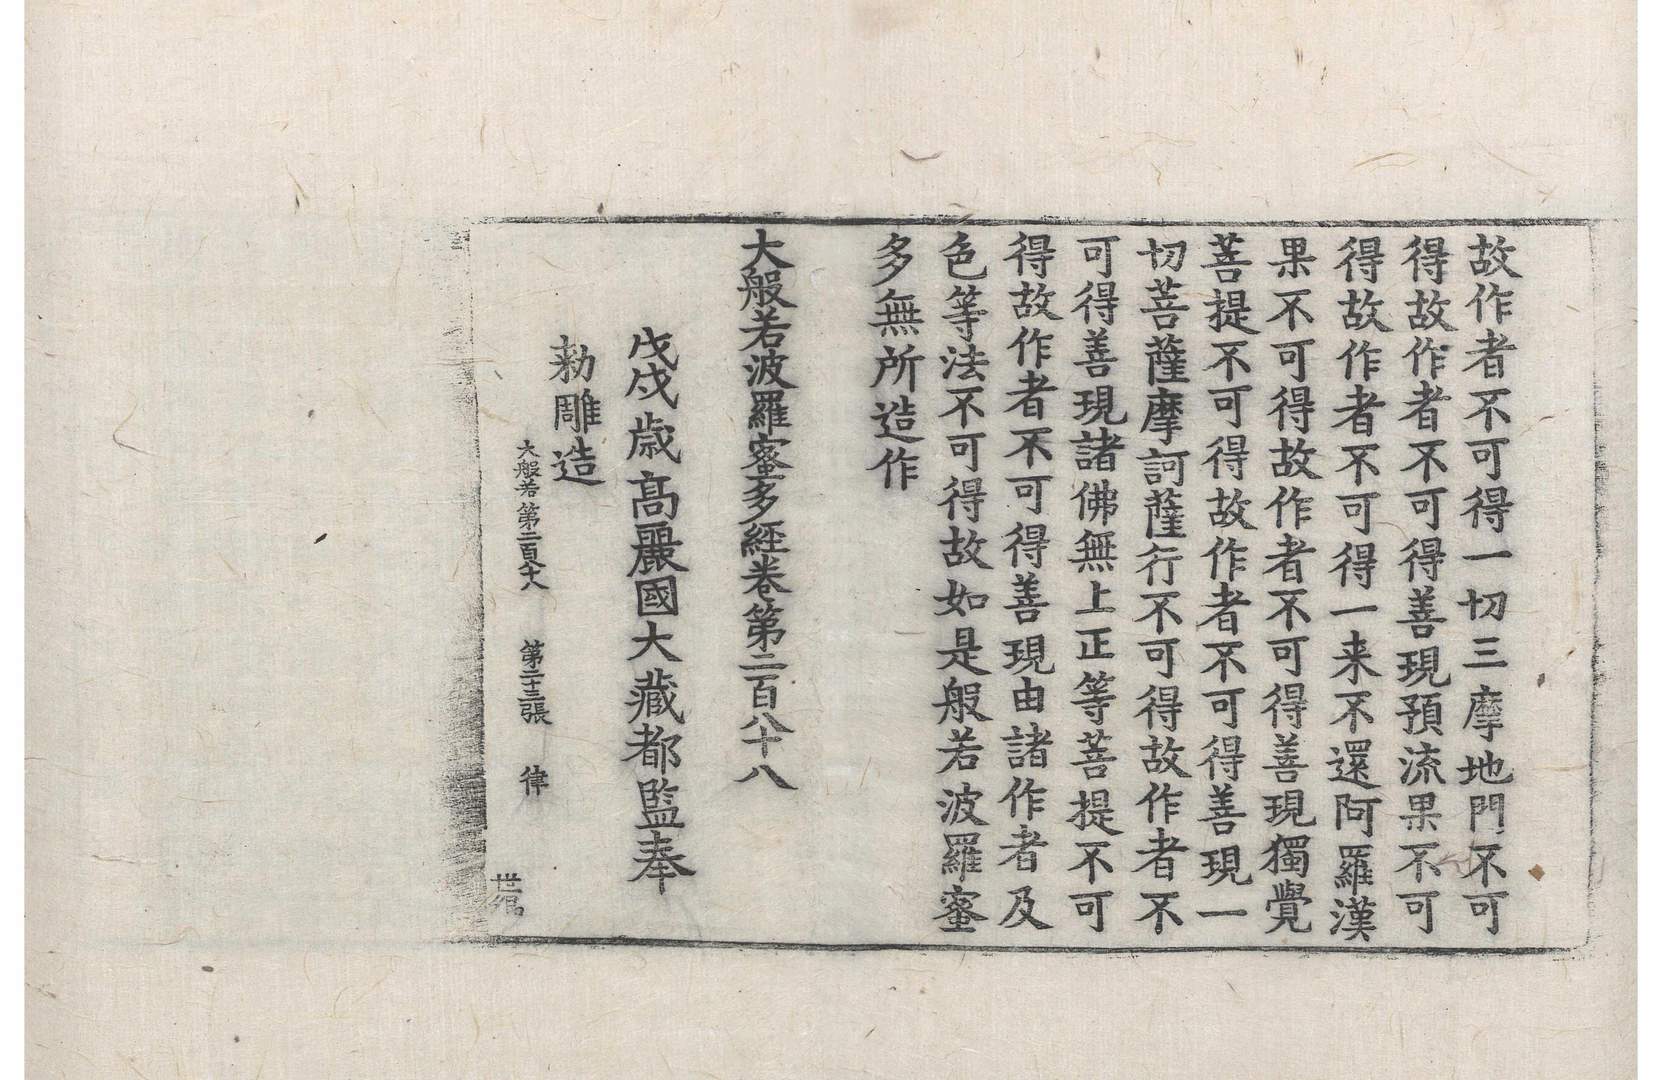 故作者不可得一切三摩地門不可
得故作者不可得善現預流果不可
得故作者不可得一来不還阿羅漢
果不可得故作者不可得善現獨覺
菩提不可得故作者不可得善現一
切菩薩摩訶薩行不可得故作者不
可得善現諸佛無上正等菩提不可
得故作者不可得善現由諸作者及
色等法不可得故如是般若波羅蜜
多無所造作
大般若波羅蜜多經卷第二百八十八
戊戌歲高麗國大藏都監奉
勑雕造
大般若第二百八十八 第二十三張 律